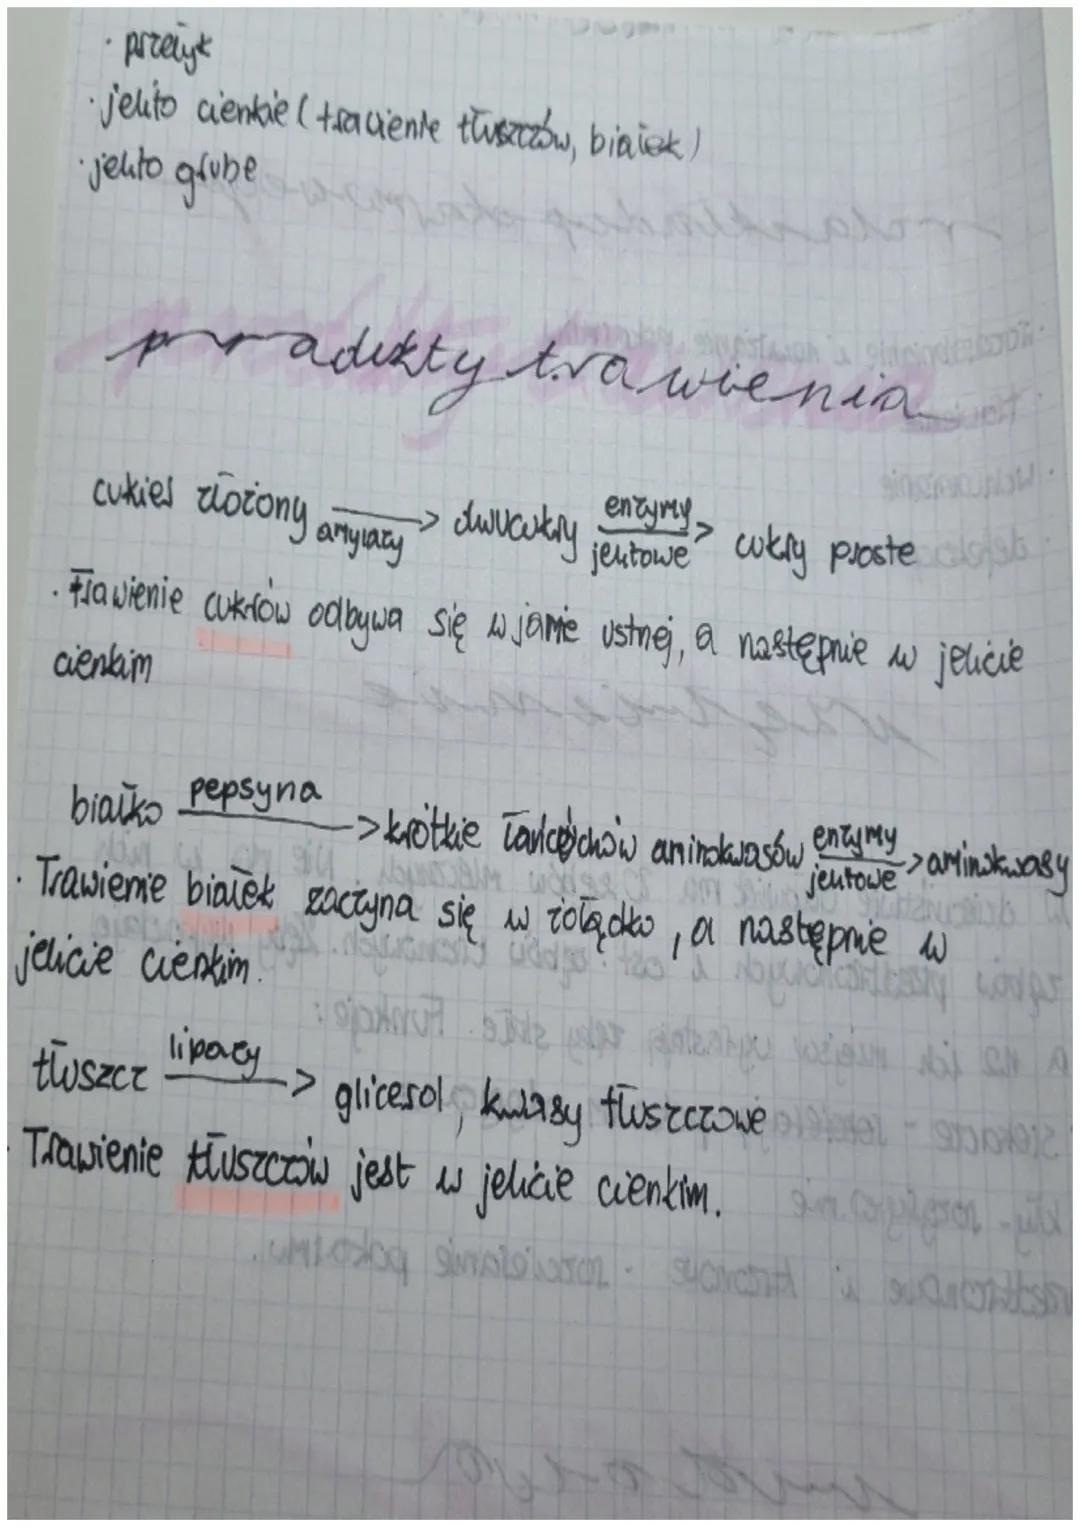 · przełyk
· jelito cienkie (trawienie tłuszczów, białek)
· jelito grube
produkty trawienia
cukier złożony amylazy > dwucukry enzymy jelitowe > cukry proste
· Trawienie cukrów odbywa się w jamie ustnej, a następnie w jelicie
cienkim
białko pepsyna > krótkie łańcuchów aminokwasów enzymy jelitowe > aminokwasy
· Trawienie białek zaczyna się w żołądko, a następnie w
jelicie cienkim.
tłuszcz lipazy > glicerol, kwasy tłuszczowe
· Trawienie tłuszczów jest w jelicie cienkim.